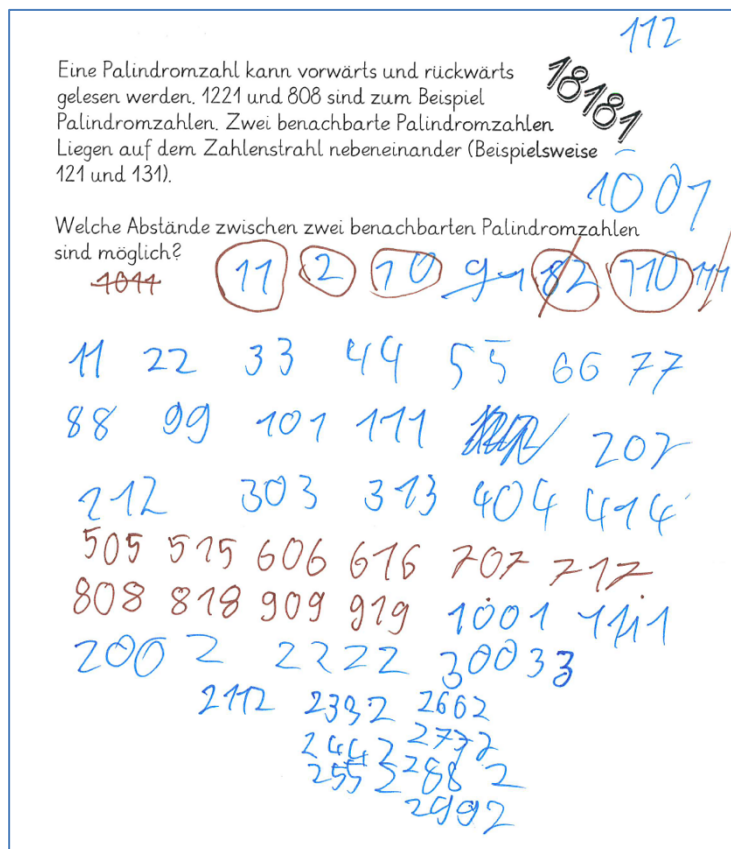 112
Eine Palindromzahl kann vorwärts und rückwärts
gelesen werden. 1221 und 808 sind zum Beispiel
Palindromzahlen. Zwei benachbarte Palindromzahlen
Liegen auf dem Zahlenstrahl nebeneinander (Beispielsweise
121 und 131).
18181
1001
Welche Abstände zwischen zwei benachbarten Palindromzahlen
sind möglich?
1011 11 2 10 91 82 110 111
11 22 33 44 55 66 77
88 99 101 111 202
212 303 313 404 414
505 515 606 616 707 717
808 818 909 919 1001 1111
2002 2222 30033
2112 2332 2662
2442 2772
2552 2882
2992